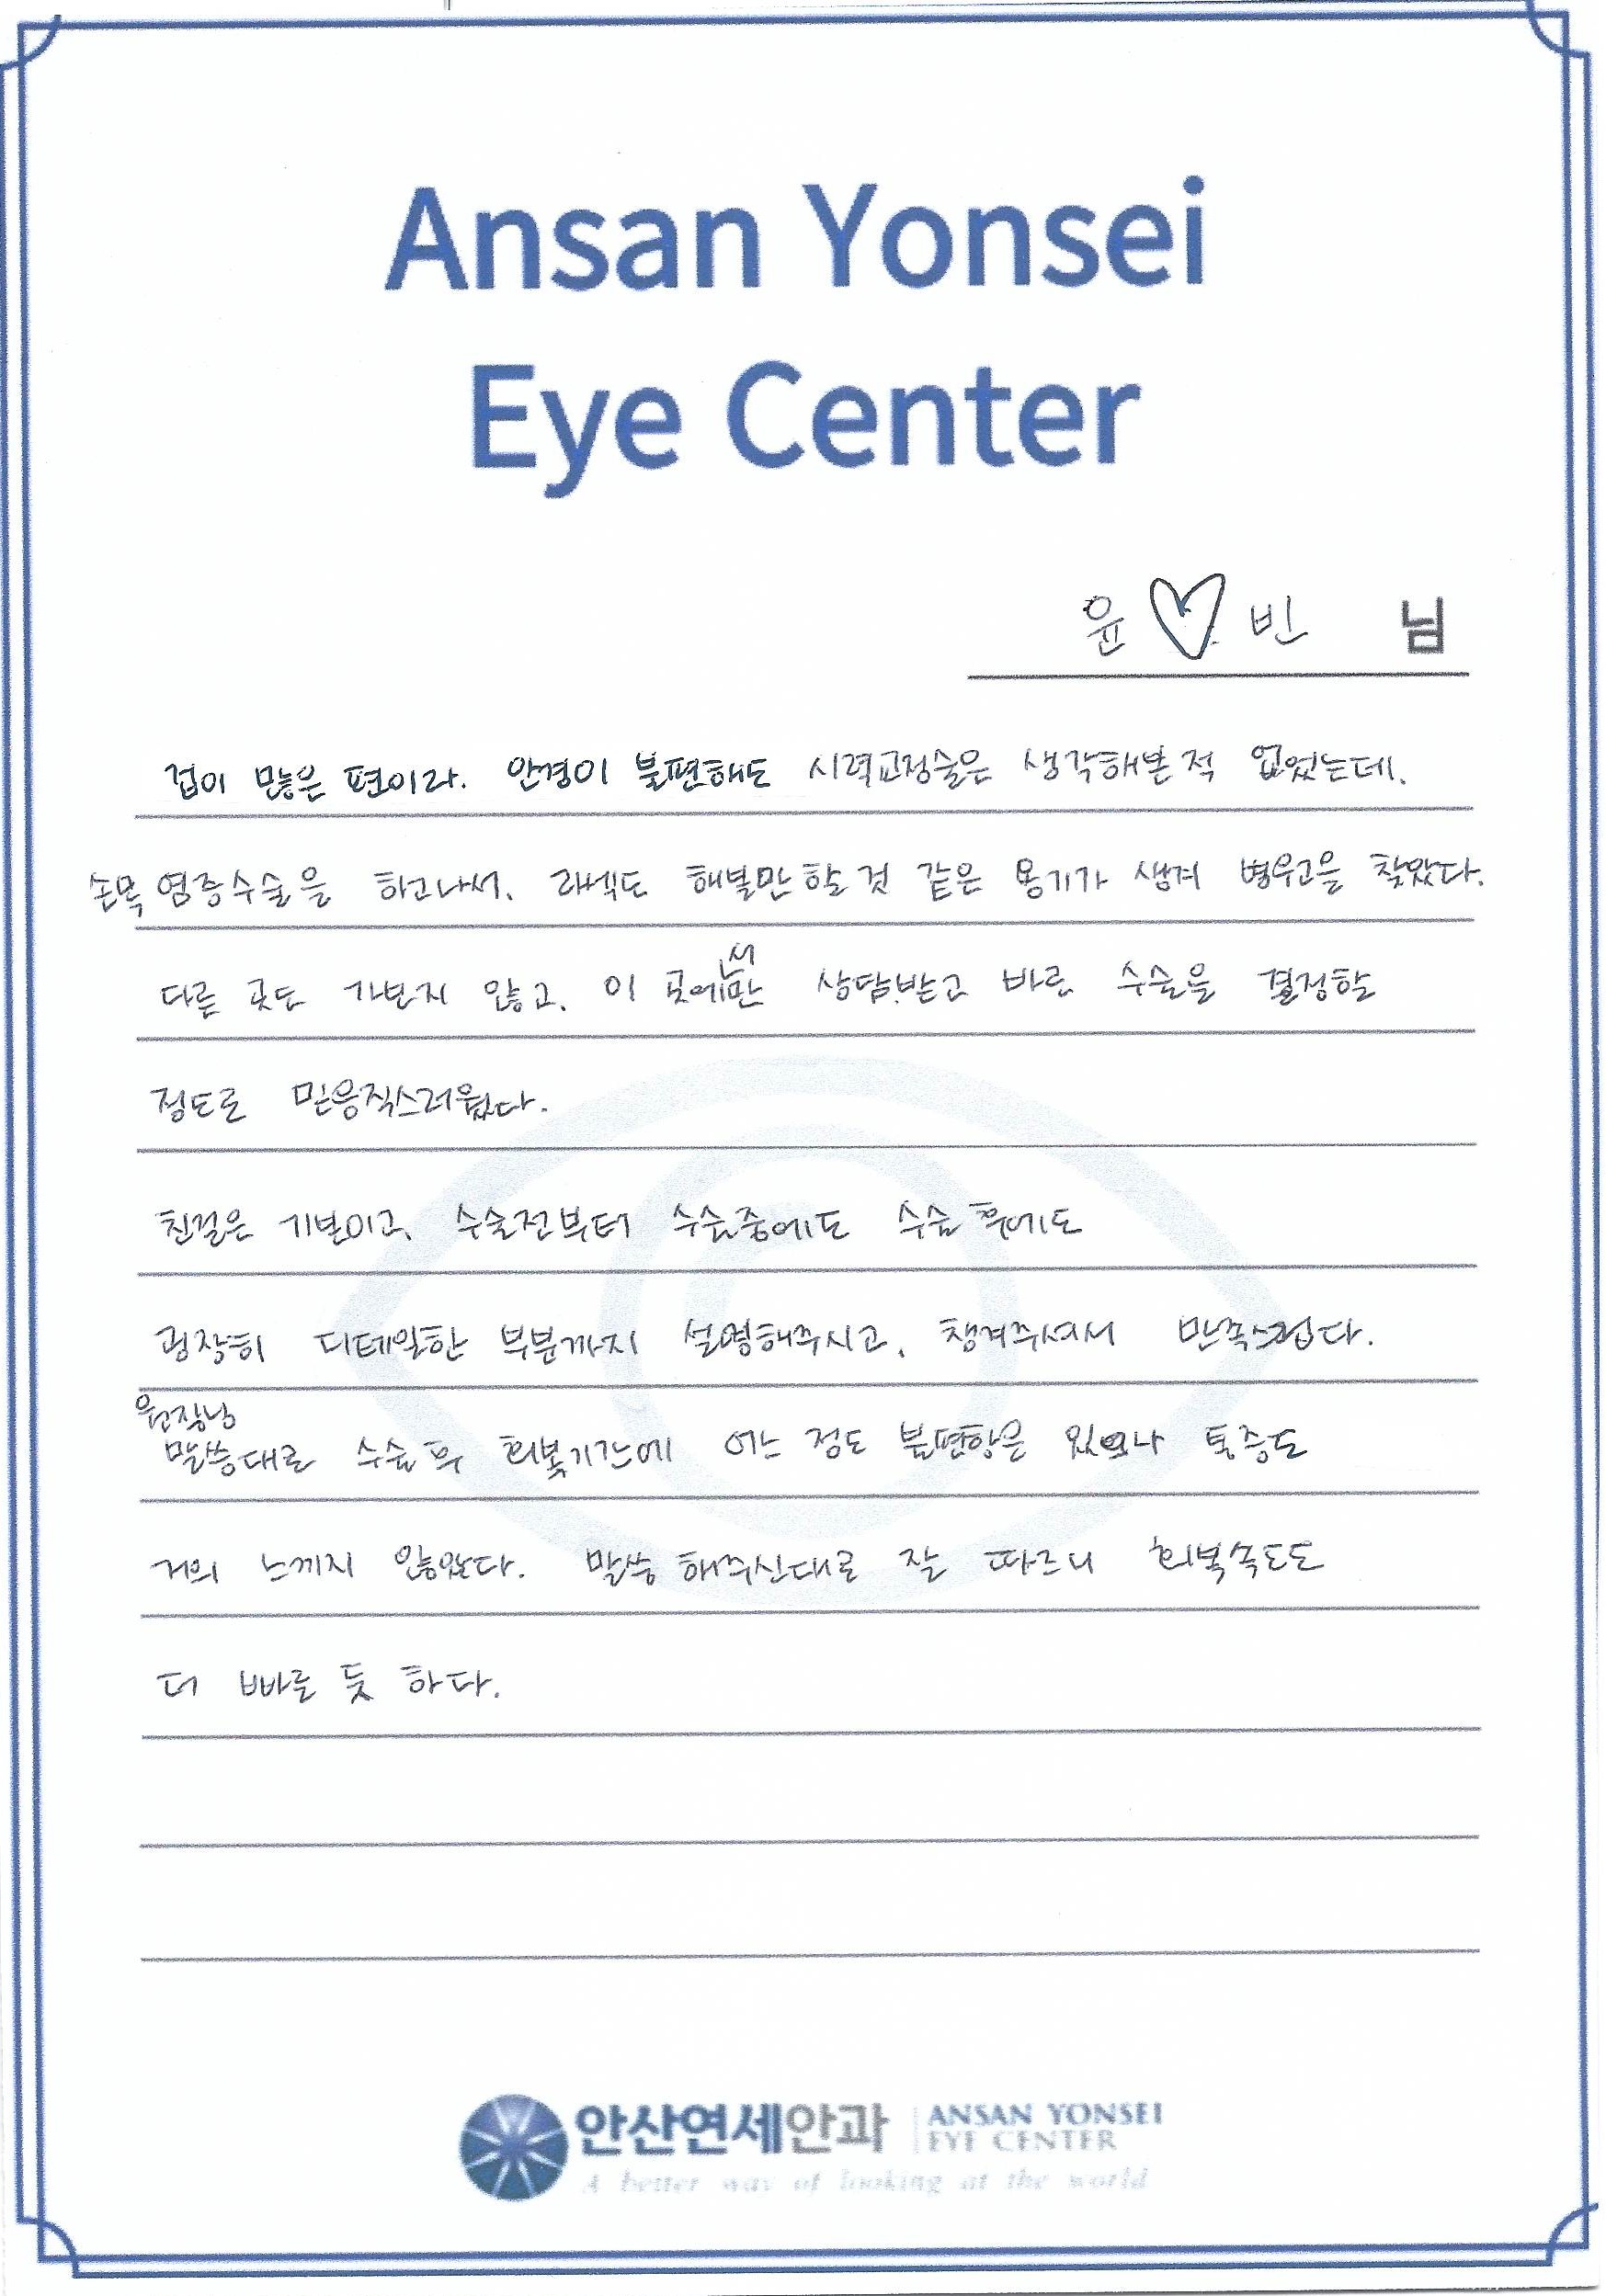 Ansan Yonsei
Eye Center
윤♡빈 님
겁이 많은 편이라. 안경이 불편해도 시력교정술은 생각해본 적 없었는데.
손목 염증수술을 하고나서. 라섹도 해볼만 할 것 같은 용기가 생겨 병원을 찾았다.
다른 곳도 가보지 않고. 이 곳에서만 상담받고 바로 수술을 결정할
정도로 믿음직스러웠다.
친절은 기본이고, 수술전부터 수술중에도 수술 후에도
굉장히 디테일한 부분까지 설명해주시고, 챙겨주셔서 만족스럽다.
원장님 말씀대로 수술 후 회복기간에 어느 정도 불편함은 있으나 통증도
거의 느끼지 않았다. 말씀 해주신대로 잘 따르니 회복속도도
더 빠를 듯 하다.
안산연세안과 ANSAN YONSEI
EYE CENTER
A better way of looking at the world